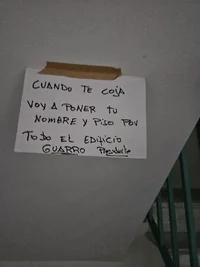 CUANDO TE COJA
VOY A PONER TU
NOMBRE Y PISO POR
TODO EL EDIFICIO
GUARRO